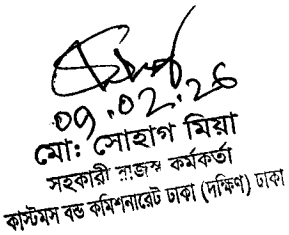 09.02.26
মো: সোহাগ মিয়া
সহকারী রাজস্ব কর্মকর্তা
কাস্টমস বন্ড কমিশনারেট ঢাকা (দক্ষিণ) ঢাকা